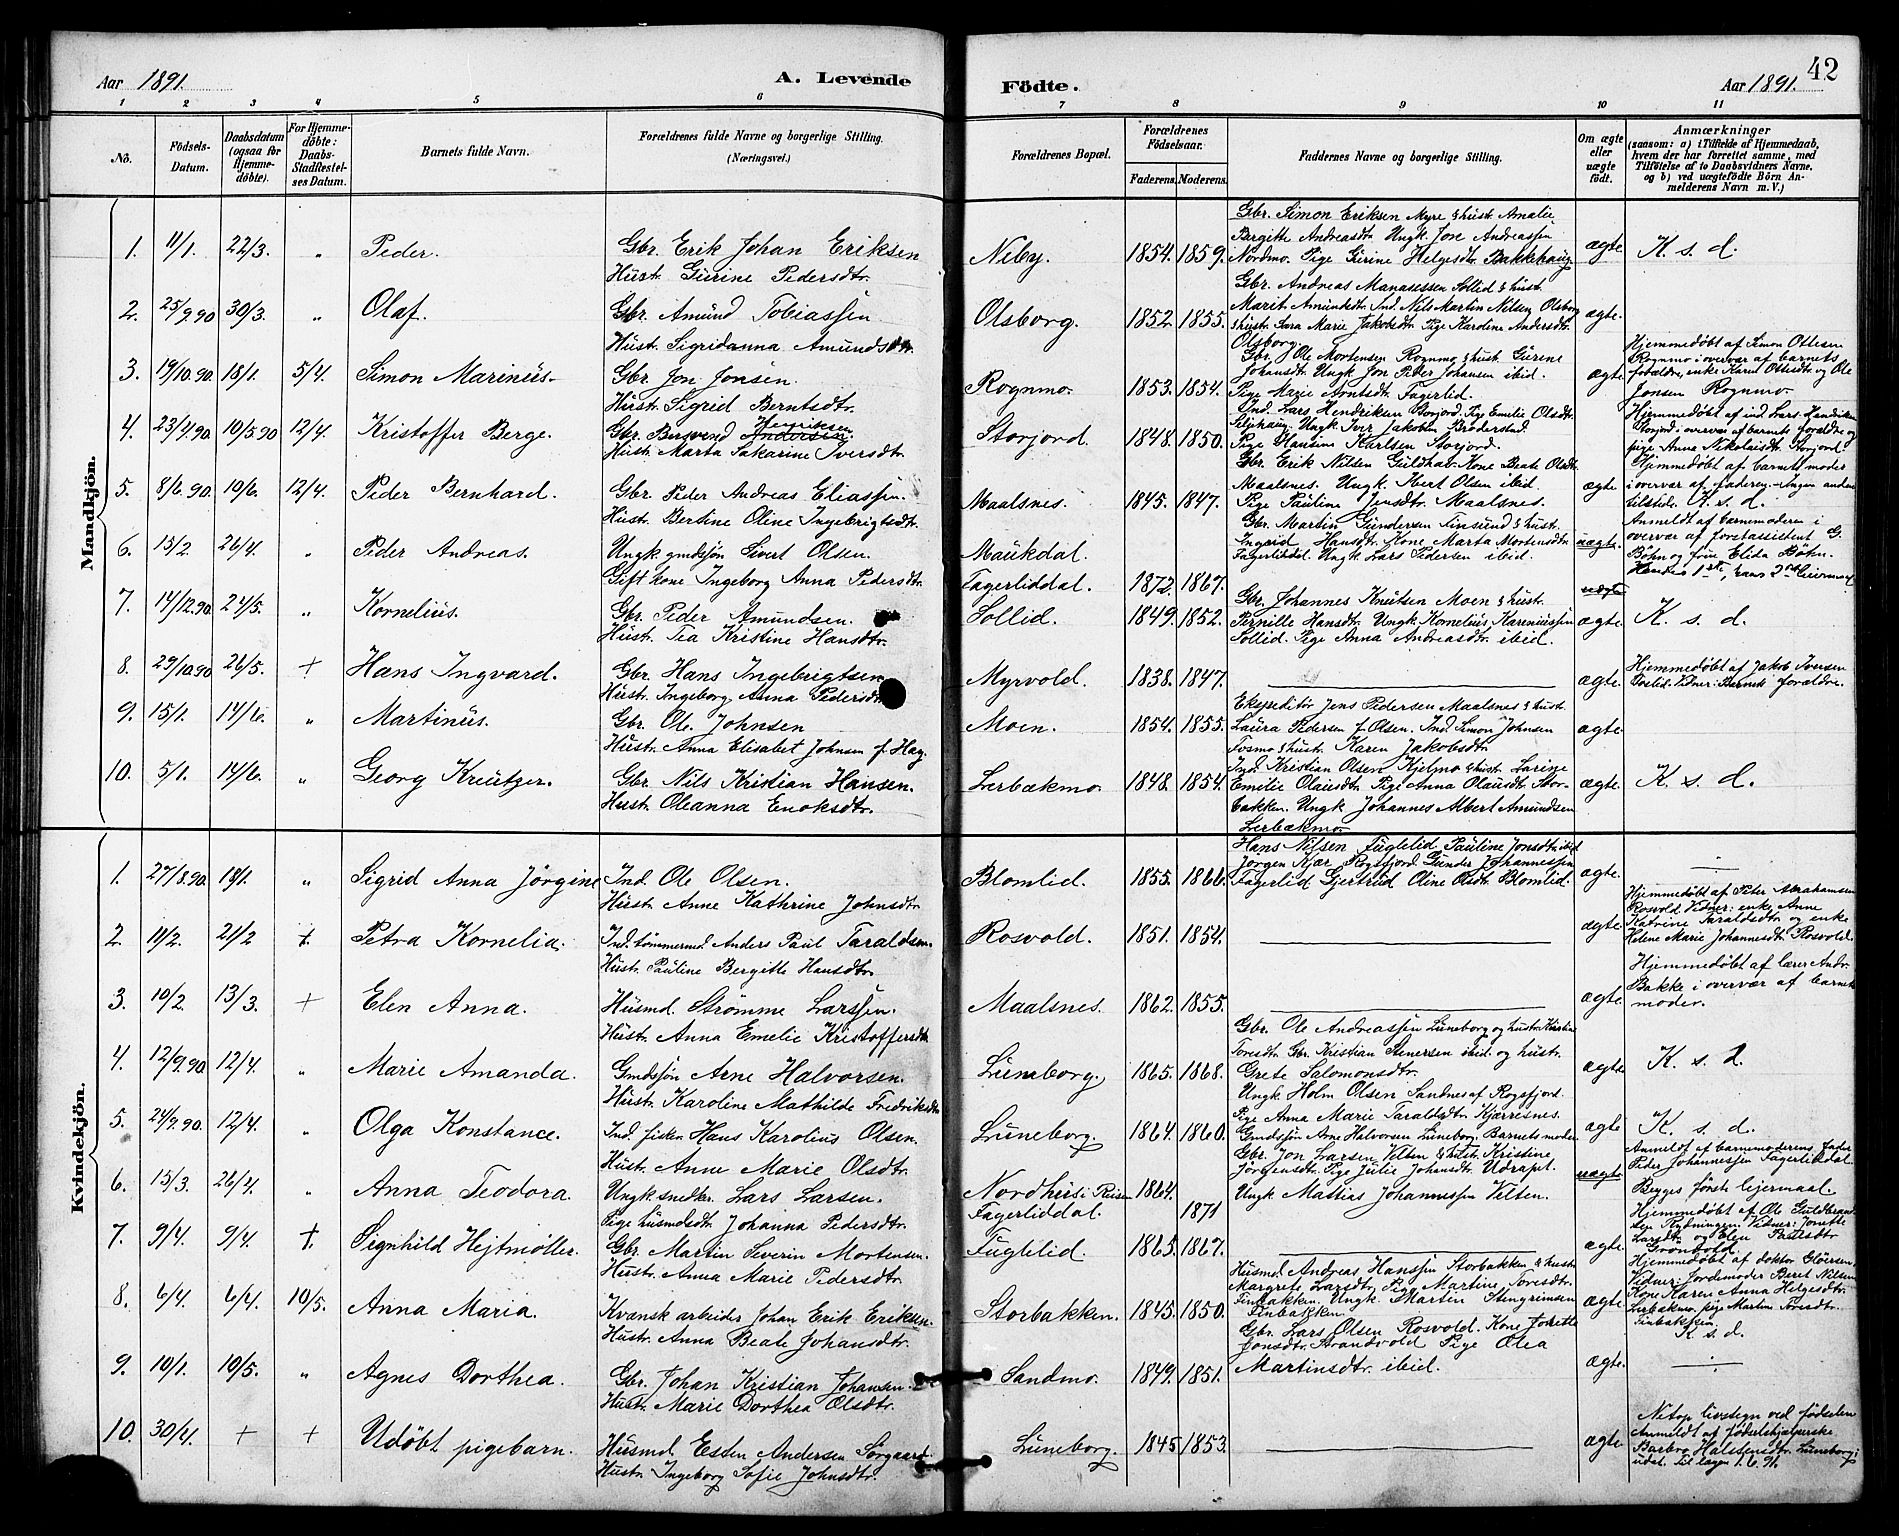 Aar 1891. A. Levende Födte. Aar 1891. 42
1 2 3 4 5 6 7 8 9 10 11
No. Födsels-Datum. Daabsdatum (ogsaa for Hjemmedöbte). For Hjemmedöbte: Daabs-Stadfæstelses Datum. Barnets fulde Navn. Forældrenes fulde Navne og borgerlige Stilling. (Næringsvei.) Forældrenes Bopæl. Forældrenes Födselsaar. Faderens. Moderens. Faddernes Navne og borgerlige Stilling. Om ægte eller uægte födt. Anmærkninger (saasom: a) i Tilfælde af Hjemmedaab, hvem der har forrettet samme, med Tilföielse af to Daabsvidners Navne, og b) ved uægtefödte Börn Anmelderens Navn m. V.)
Mandkjön.
1. 11/1. 22/3. " Peder. Gbr. Erik Johan Eriksen
Hustr. Gurine Pedersdtr.
Neby. 1854. 1859.
Gbr. Simon Eriksen Myre & hust. Amalie
Bergitte Andreasdtr. Ungk. Jon Andreassen
Nordmo. Pige Gurine Helgesdtr. Bakkehaug.
ægte K. s. d.
2. 25/9.90 30/3. " Olaf. Gbr. Amund Tobiassen
Hust. Sigridanna Amundsdtr.
Olsborg. 1852. 1855.
Gbr. Andreas Manasessen Sollid & hust.
Marit Amundsdt. Ind. Nils Martin Nilsen Olsborg
& hustr. Sara Marie Jakobsdtr. Pige Karoline Andersdtr.
Olsborg.
ægte.
3. 19/10.90. 18/1. 5/4. Simon Marinus. Gbr. Jon Jonsen.
Hustr. Sigrid Berntsdtr.
Rognmo. 1853. 1854.
Gbr. Ole Mortensen Rognmo & hust. Gurene
Johansdtr. Ungk. Jon Peder Johansen ibid.
Pige Marie Arntsdtr. Fagerlid.
ægte
Hjemmedøbt af Simon Ottesen
Rognmo i overvær af barnets
forældre, enke Karen Ottesdtr. og Ole
Jonsen Rognmo.
4. 23/4.90. 10/5 90 12/4. Kristoffer Berge. Gbr. Bersvend Henriksen
Hust. Marta Sakarine Iversdtr.
Storjord. 1848. 1850.
Ind. Lars Hendriksen Storjord. Pige Emilie Olsdtr.
Seljehaug. Ungk. Iver Jakobsen Brøderstad.
Pige Hansine Karlsen Storjord.
Hjemmedøbt af ind. Lars Hendriksen
Storjord i overvær af barnets forældre og
pige Anne Nikolaisdtr. Storjord.
5. 8/6.90. 10/6. 12/4. Peder Bernhard. Gbr. Peder Andreas Eliassen.
Hust. Bertine Oline Ingebrigtsdtr.
Maalsnes. 1845. 1847.
Gbr. Erik Nilsen Guldhav. Kone Beate Olsdtr.
Maalsnes. Ungk. Hert Olsen ibid.
Pige Pauline Jensdtr. Maalsnes.
ægte
Hjemmedøbt af barnets moder
i overvær af faderen. Ingen anden
tilstede. K. s. d.
6. 15/2. 26/4. " Peder Andreas. Ungk. gmdsøn Sivert Olsen.
Gift kone Ingeborg Anna Pedersdtr.
Maukdal.
Fagerliddal. 1872. 1867.
Gbr. Martin Gundersen & hust.
Ingrid Hansdtr. Kone Marta Mortensdtr.
Fagerliddal. Ungk. Lars Pedersen ibid.
uægte.
Anmeldt af barnemoderen i
overvær af foretassistent G.
Bøhn og frue Elida Bøhn.
Hendes 1ste, hans 2det leiermaal
7. 14/12.90. 24/5. " Kornelius. Gbr. Peder Amundsen.
Hustr. Tea Kristine Hansdtr.
Sollid. 1849. 1852.
Gbr. Johannes Knutsen Moen & hust.
Pernille Hansdtr. Ungk. Kornelius Kareniussen
Sollid. Pige Anna Andreasdtr. ibid.
uægte
ægte K. s. d.
8. 29/10.90 26/5. + Hans Ingvard. Gbr. Hans Ingebrigtsen
Hustr. Ingeborg Anna Pedersdtr.
Myrvold. 1838. 1847.
ægte.
Hjemmedøbt af Jakob Iversen
Vidner: Barnets forældre.
9. 15/1. 14/6. " Martinus. Gbr. Ole Johnsen
Hustr. Anna Elisabet Johnsen f. Hag.
Moen. 1854. 1855.
Ekspeditør Jens Pedersen Maalsnes & hust.
Laura Pedersen f. Olsen. Ind. Simon Johnsen
Fosmo & hust. Karen Jakobsdtr.
ægte.
10. 5/1. 14/6. " Georg Kreutzer. Gbr. Nils Kristian Hansen.
Hust. Oleanna Enoksdtr.
Lerbækmo. 1848. 1854.
Ind. Kristian Olsen Kjelmo & hust. Larine
Emilie Olausdtr. Pige Anna Olausdtr. Stor-
bakken. Ungk. Johannes Albert Amundsen
Lerbækmo.
ægte. K. s. d.
Kvindekjön.
1. 27/8.90. 18/1. " Sigrid Anna Jörgine Ind. Ole Olsen.
Hustr. Anne Kathrine Johnsdtr.
Blomlid. 1855. 1866.
Hans Nilsen Fuglelid. Pauline Jonsdtr. ibid
Jørgen Kjær Rogsfjord. Gunder Johannessen
Fagerlid. Gjertrud Oline Olsdtr. Blomlid.
ægte.
2. 11/2. 21/2 +. Petra Kornelia. Ind. tømmermd. Anders Paul Taraldsen.
Hustr. Pauline Bergitte Hansdtr.
Rosvold. 1851. 1854.
ægte
Hjemmedøbt af Peter Abrahamsen
Rosvold. Vidner: enke Anne
Katrine Taraldsdtr. og enke
Helene Marie Johannesdtr. Rosvold.
3. 10/2. 13/3. + Elen Anna. Husmd. Strømme Larssen.
Hust. Anna Emelie Kristoffersdtr.
Maalsnes. 1862. 1855.
ægte
Hjemmedøbt af lærer Andr.
Bakke i overvær af barnets
moder.
4. 12/9.90 12/4. " Marie Amanda. Gmdsøn Arne Halvorsen.
Hustr. Karoline Mathilde Fredriksdtr.
Luneborg. 1865. 1868.
Gbr. Ole Andreassen Luneborg og hustr. Kristine
Toresdtr. Gbr. Kristian Stenersen ibid. og hustr.
Grete Salomonsdtr.
ægte K. s. d.
5. 24/9.90. 12/4. " Olga Konstance. Ind. fisker Hans Karolius Olsen.
Hustr. Anne Marie Olsdtr.
Luneborg. 1864. 1860.
Ungk. Holm Olsen Sandnes af Rogsfjord.
Pige Anna Marie Taraldsdtr. Kjærresnes.
Gmdssøn Arne Halvorsen Luneborg. Barnets moder.
ægte K. s. d.
6. 15/3. 26/4. " Anna Teodora. Ungk. snedker. Lars Larsen.
Pige husmdsdtr. Johanna Pedersdtr.
Nordhus i Rissen 1864.
Fagerliddal. 1871
Gbr. Jon Larsen Velten & hust. Kristine
Jørgensdtr. Pige Julie Johansdtr. Udrapet.
Ungk. Mattias Johannessen Velten.
uægte
Anmeldt af barnemoderens fader
Peder Johannessen Fagerliddal.
Begges første leiermaal.
7. 9/4. 9/4. +. Signhild Hejtmøller. Gbr. Martin Severin Mortensen.
Hustr. Anna Marie Pedersdtr.
Fuglelid. 1865. 1867.
ægte
Hjemmedøbt af Ole Guldbrand-
sen Rydningen. Vidner: Jonette
Larsdtr. og Elen Paulsdtr.
Grønvold.
8. 6/4. 6/4. 10/5. Anna Maria. Kvænsk arbeider Johan Erik Eriksen.
Hustr. Anna Beate Johansdtr.
Storbakken. 1845. 1850.
Husmd. Andreas Hanssen Storbakken & hust.
Margrete Larsdtr. Pige Martine Toresdtr.
Finbakken. Ungk. Martin Stengrimsen
Finbakken.
ægte
Hjemmedøbt af doktor Gløersen.
Vidner: Jordemoder Beret Nilsen
Kone Karen Anna Helgesdtr.
Lerbækmo, pige Martine Toresdtr.
Finbakken.
K. s. d.
9. 10/1. 10/5. " Agnes Dorthea. Gbr. Johan Kristian Johansen.
Hustr. Marie Dorthea Olsdtr.
Sandmo. 1849. 1851.
Gbr. Lars Olsen Rosvold. Kone Jonette
Jonsdtr. Strandvold Pige Olea
Martinsdtr. ibid.
ægte.
10. 30/4. + + Udøbt pigebarn. Husmd. Esten Andersen Sørgaard.
Hustr. Ingeborg Sofie Johnsdtr.
Luneborg. 1845 1853.
ægte
Netop livstegn ved fødselen
Anmeldt af fødselshjælperske
Barbro Halstensdtr. Luneborg;
udst. til lagen 1.6.91.